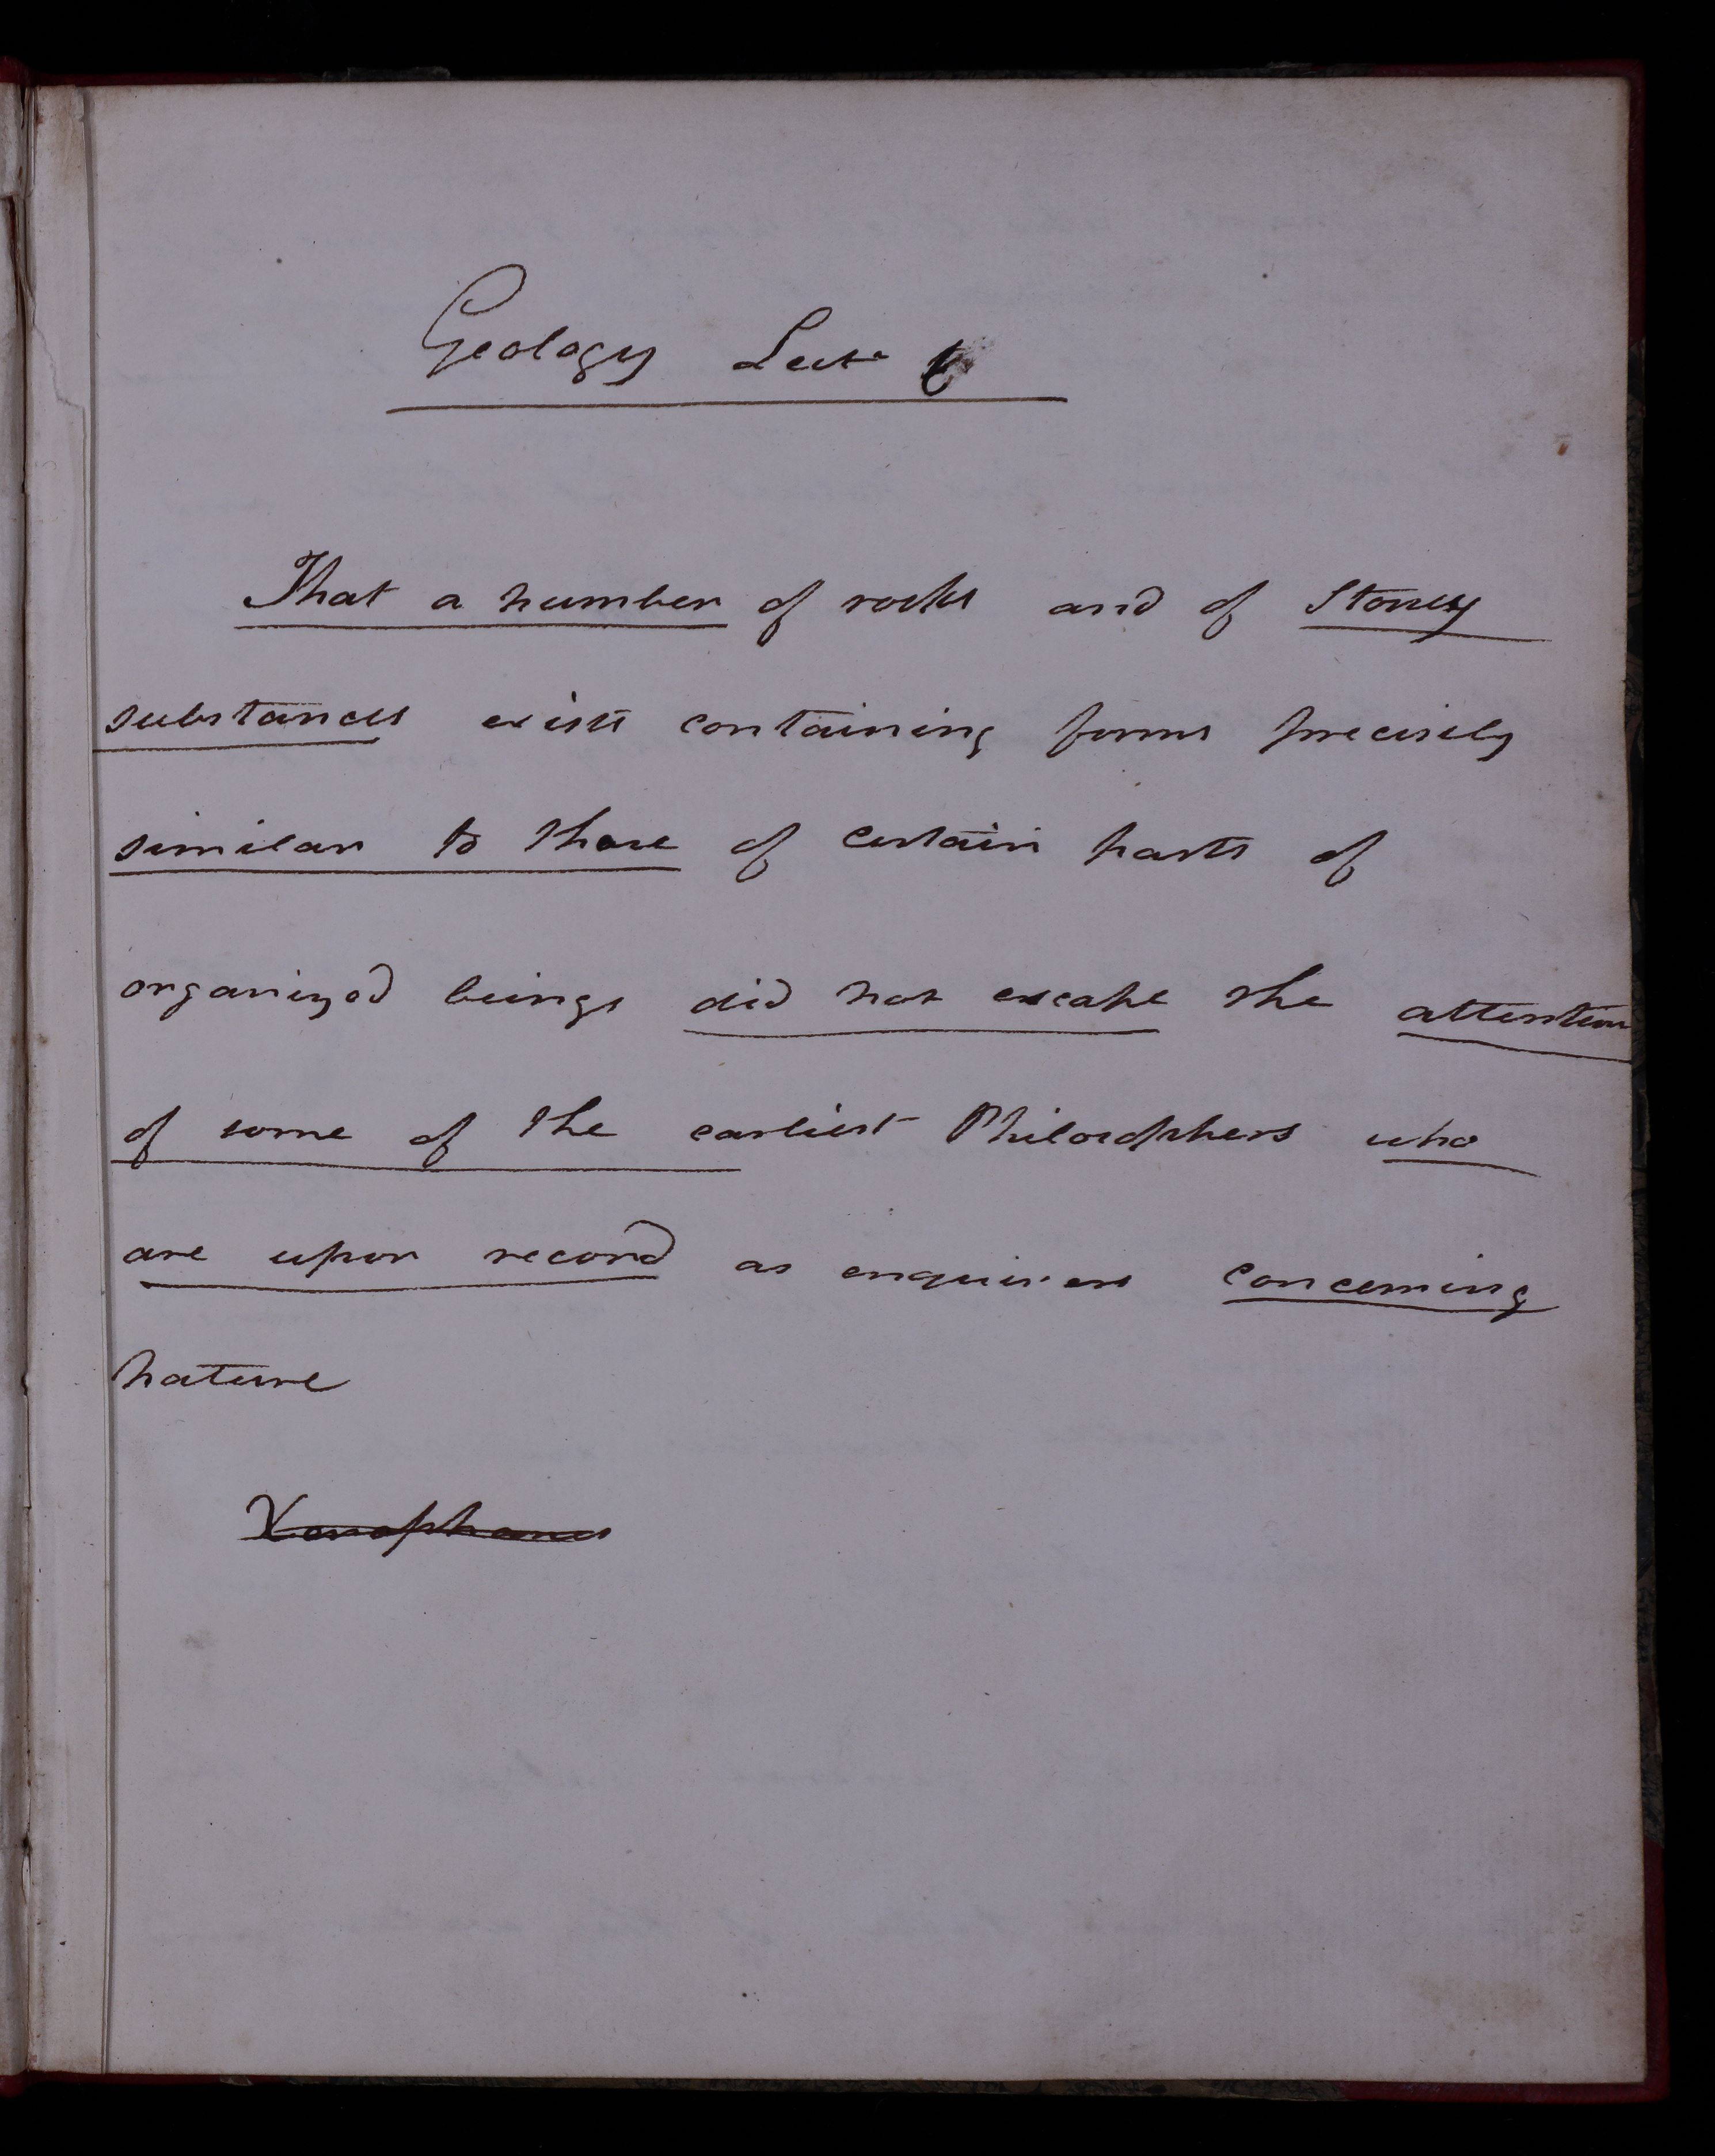 Geology Lect 6
That a number of rocks and of stoney
substances exist containing forms precisely
similar to those of certain parts of
organized beings did not escape the attention
of some of the earliest Philosophers who
are upon record as enquirers concerning
nature
Xenophanes